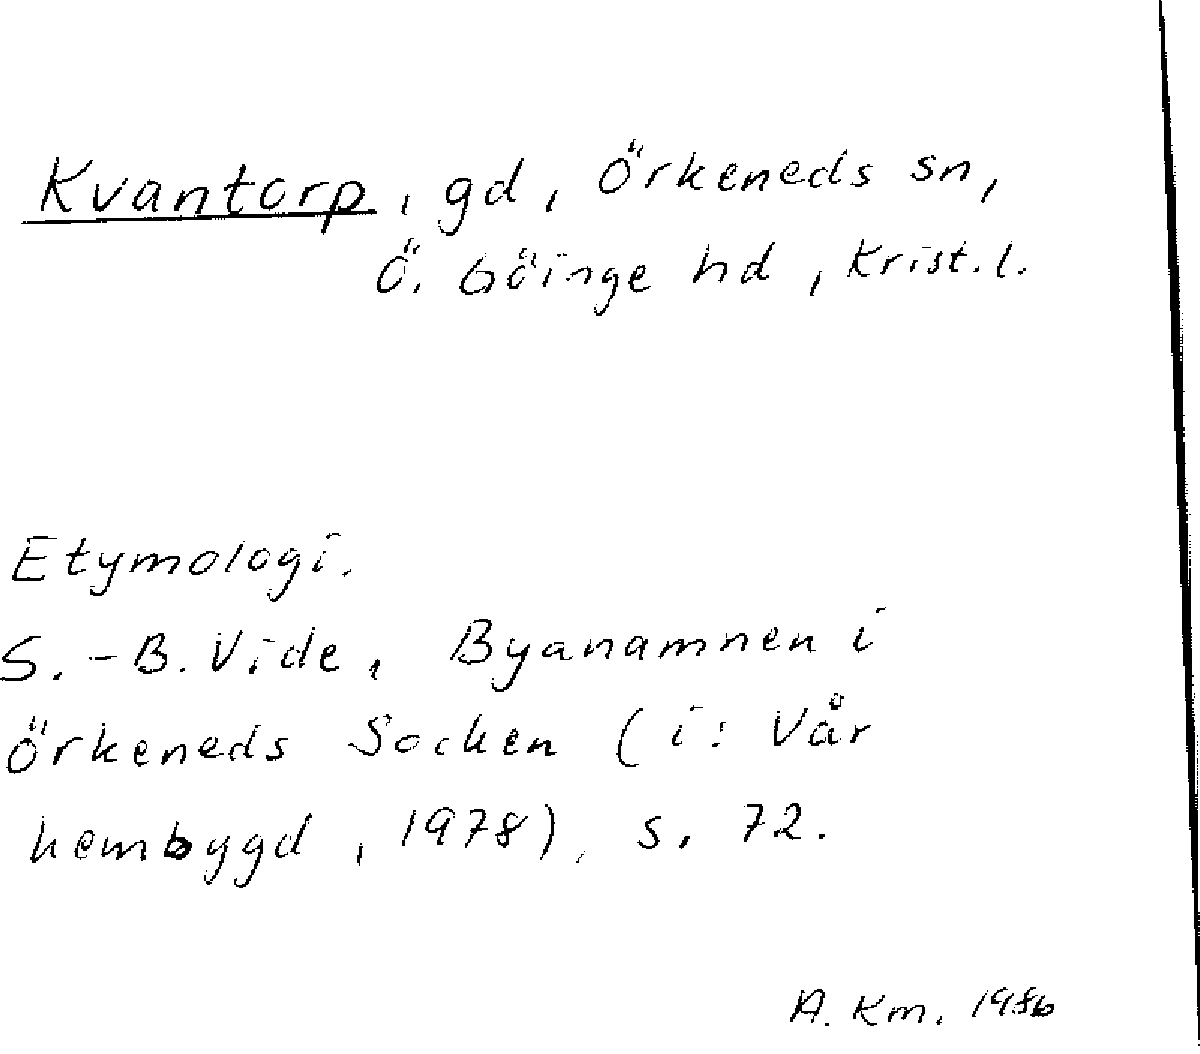 Kvantorp, gd, Örkeneds sn,
Ö. Göinge hd, Krist. l.
Etymologi.
S.-B. Vide, Byanamnen i
Örkeneds Socken (i: Vår
hembygd, 1978), s. 72.
A. Km. 1986